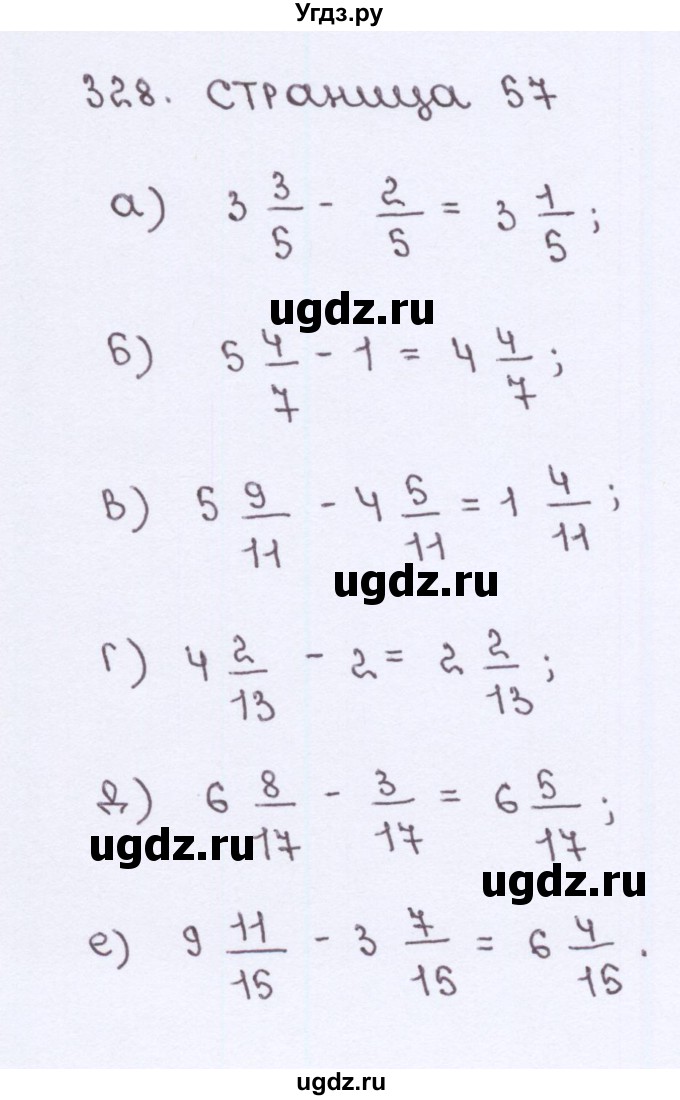 Угдз.ру
328. страница 57
а) 3 3/5 - 2/5 = 3 1/5;
ugdz.ru
б) 5 4/7 - 1 = 4 4/7;
в) 5 9/11 - 4 5/11 = 1 4/11;
ugdz.ru
г) 4 2/13 - 2 = 2 2/13;
д) 6 8/17 - 3/17 = 6 5/17;
ugdz.ru
ugdz.ru
е) 9 11/15 - 3 7/15 = 6 4/15.
ugdz.ru